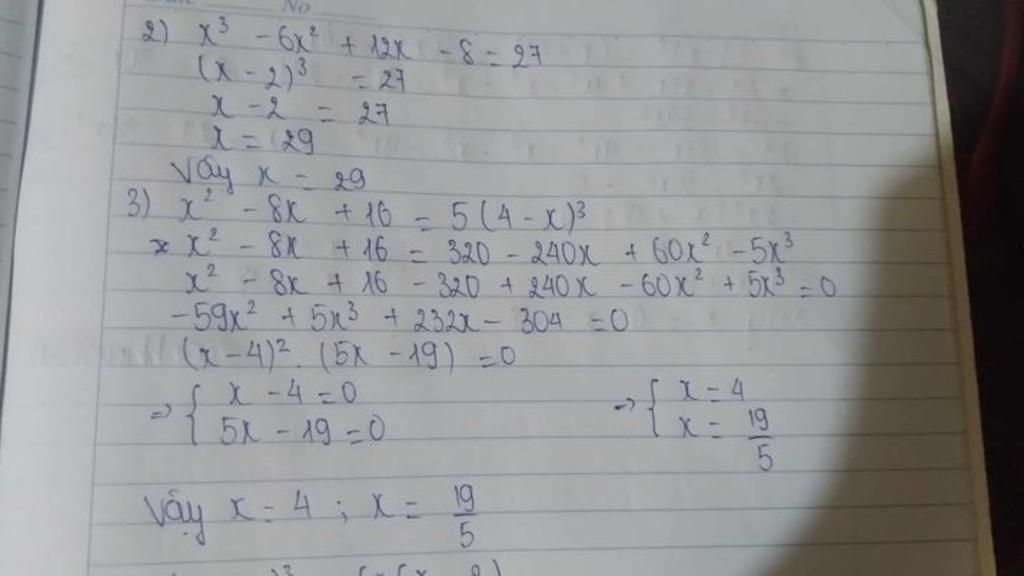 No
2) x³ - 6x² + 12x - 8 = 27
(x - 2)³ = 27
x - 2 = 27
x = 29
Vậy x = 29
3) x² - 8x + 16 = 5(4 - x)³
x² - 8x + 16 = 320 - 240x + 60x² - 5x³
x² - 8x + 16 - 320 + 240x - 60x² + 5x³ = 0
-59x² + 5x³ + 232x - 304 = 0
(x - 4)² . (5x - 19) = 0
=> { x - 4 = 0 => { x = 4
5x - 19 = 0 x = 19/5
Vậy x = 4 ; x = 19/5